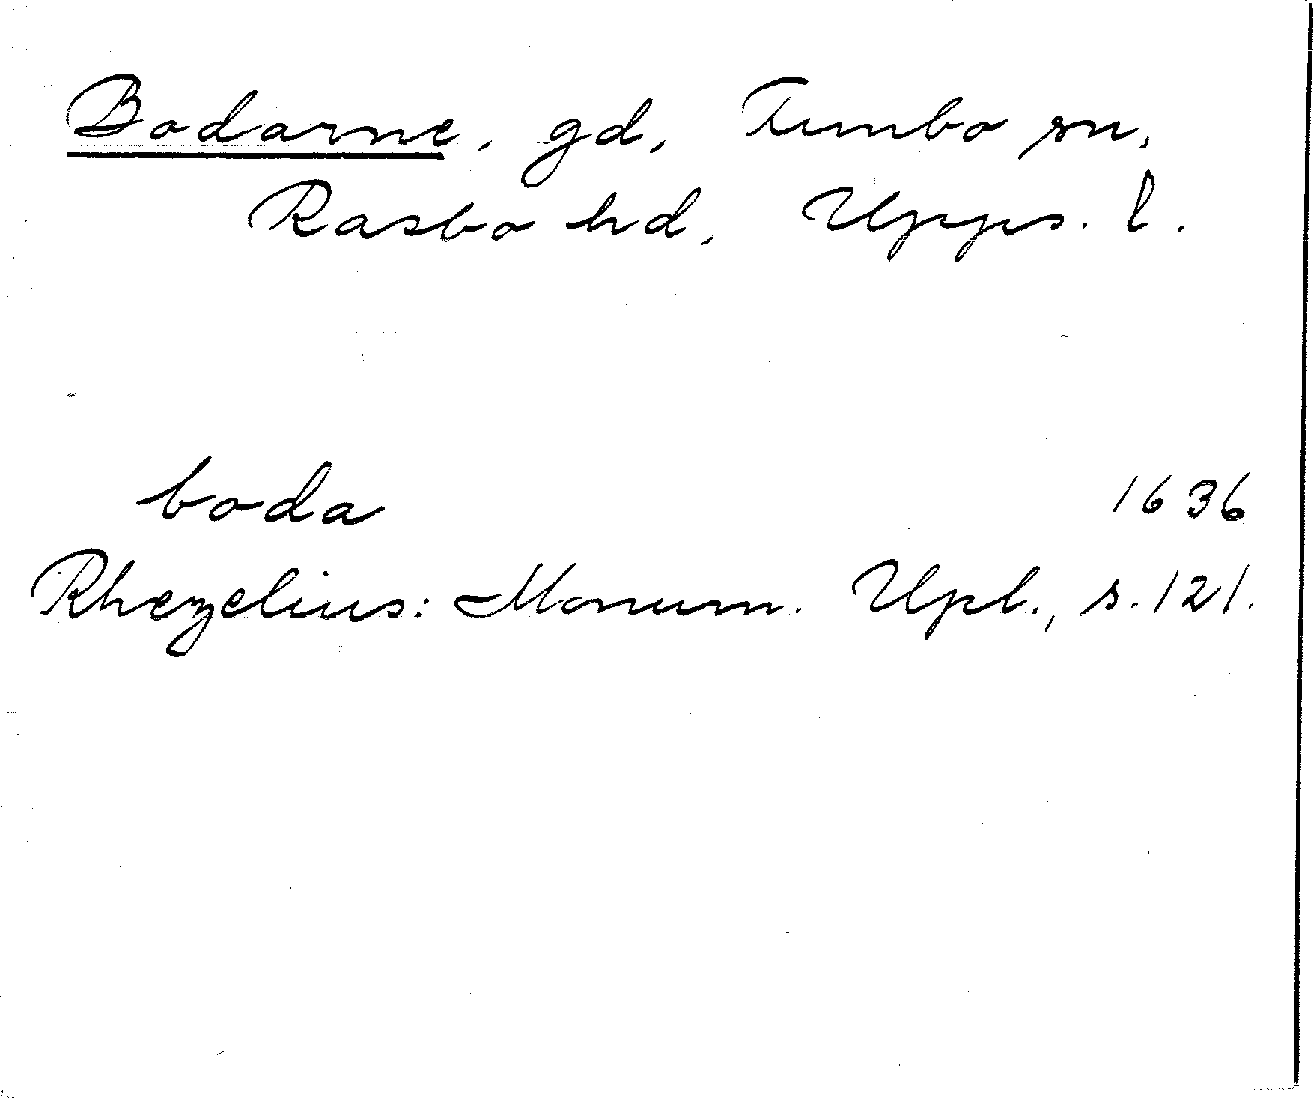 Bodarne, gd, Funbo sn,
Rasbo hd, Upps. l.
boda 1636
Rhezelius: Monum. Upl., s. 121.